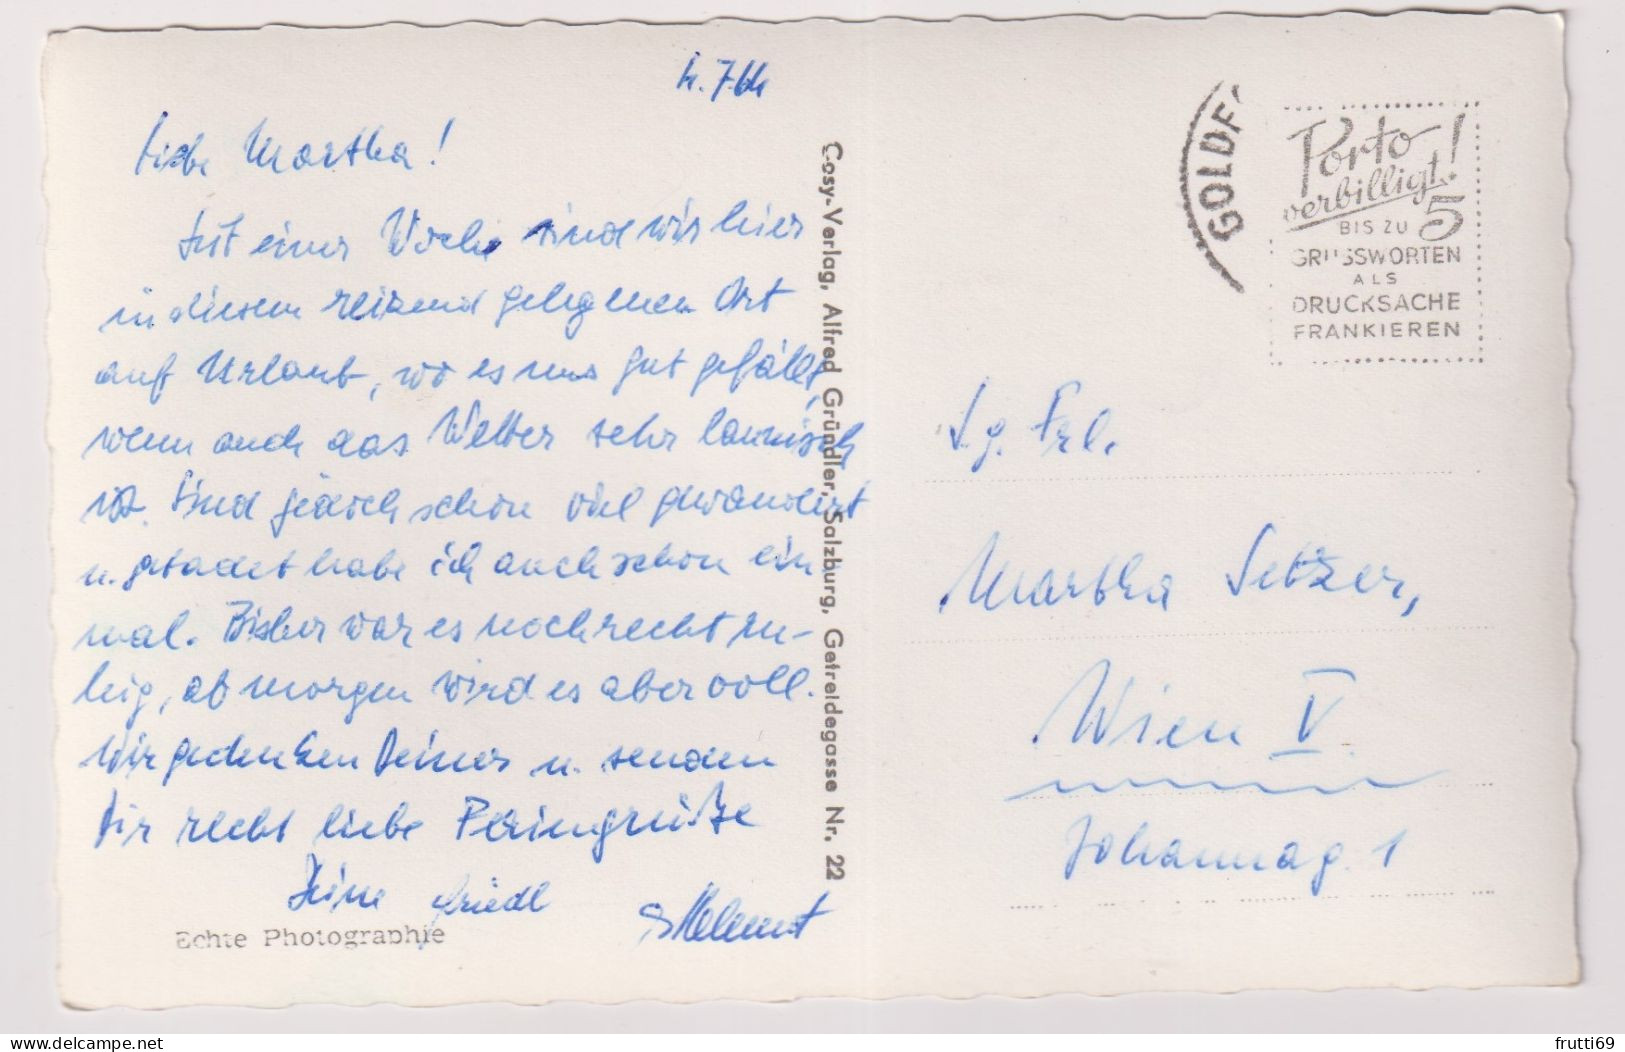 4.7.64
Liebe Martha!
Seit einer Woche sind wir hier
in diesem reizend gelegenen Ort
auf Urlaub, wo es uns gut gefällt,
wenn auch das Wetter sehr launisch
ist. Sind jedoch schon viel gewandert
u. gebadet habe ich auch schon ein
mal. Bisher war es noch recht ru-
hig, ab morgen wird es aber voll.
Wir gedenken Deiner u. senden
Dir recht liebe Feriengrüße
Deine Friedl
& Helmut
Echte Photographie
Cosy-Verlag, Alfred Gründler, Salzburg, Getreidegasse Nr. 22
GOLDE
Porto
verbilligt!
BIS ZU 5
GRUSSWORTEN
ALS
DRUCKSACHE
FRANKIEREN
Frl.
Martha Setzer,
Wien V.
Johannag. 1
frutti69